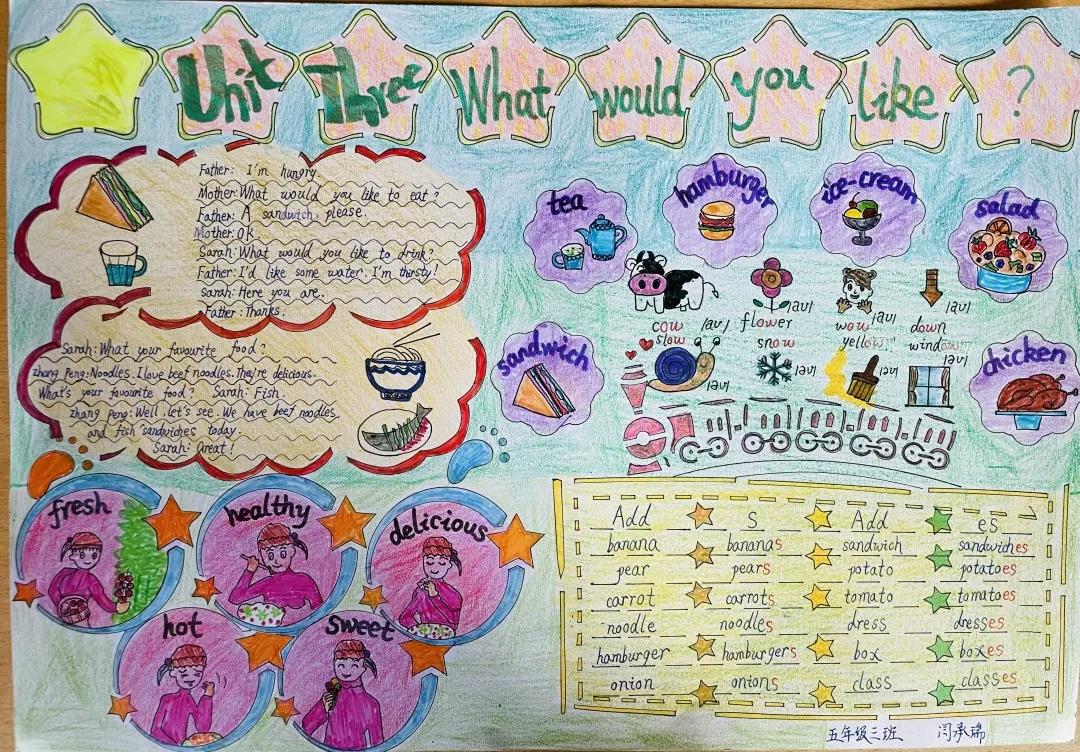 Unit Three What would you like ?
Father: I'm hungry.
Mother: What would you like to eat?
Father: A sandwich, please.
Mother: Ok
Sarah: What would you like to drink?
Father: I'd like some water. I'm thirsty!
Sarah: Here you are.
Father: Thanks.
Sarah: What your favourite food?
zhang peng: Noodles. I love beef noodles. They're delicious.
What's your favourite food? Sarah: Fish.
zhang peng: Well, let's see. We have beef noodles
and fish sandwiches today.
Sarah: Great!
tea
hamburger
ice-cream
salad
sandwich
chicken
cow /au/ flower /au/ wow /au/ down /au/
slow /əu/ snow /əu/ yellow /əu/ window /əu/
fresh
healthy
delicious
hot
sweet
Add s Add es
banana bananas sandwich sandwiches
pear pears potato potatoes
carrot carrots tomato tomatoes
noodle noodles dress dresses
hamburger hamburgers box boxes
onion onions class classes
五年级三班 闫承瑞